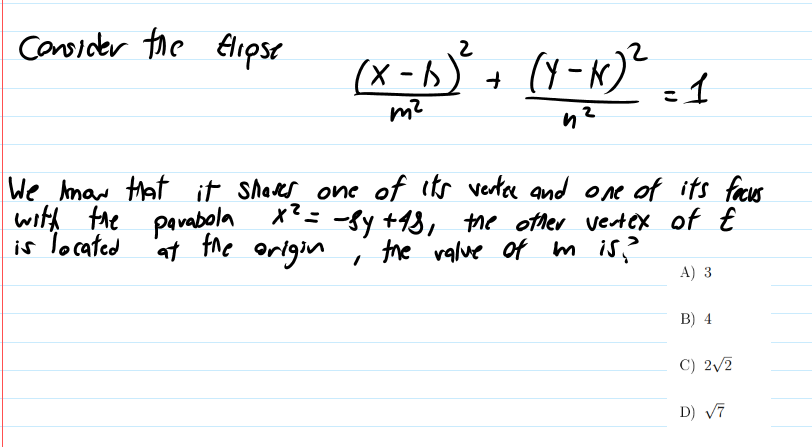 Consider the Elipse
(x - h)² / m² + (y - k)² / n² = 1
We know that it shares one of its vertex and one of its focus
with the parabola x² = -8y + 48, the other vertex of E
is located at the origin, the value of m is?
A) 3
B) 4
C) 2√2
D) √7